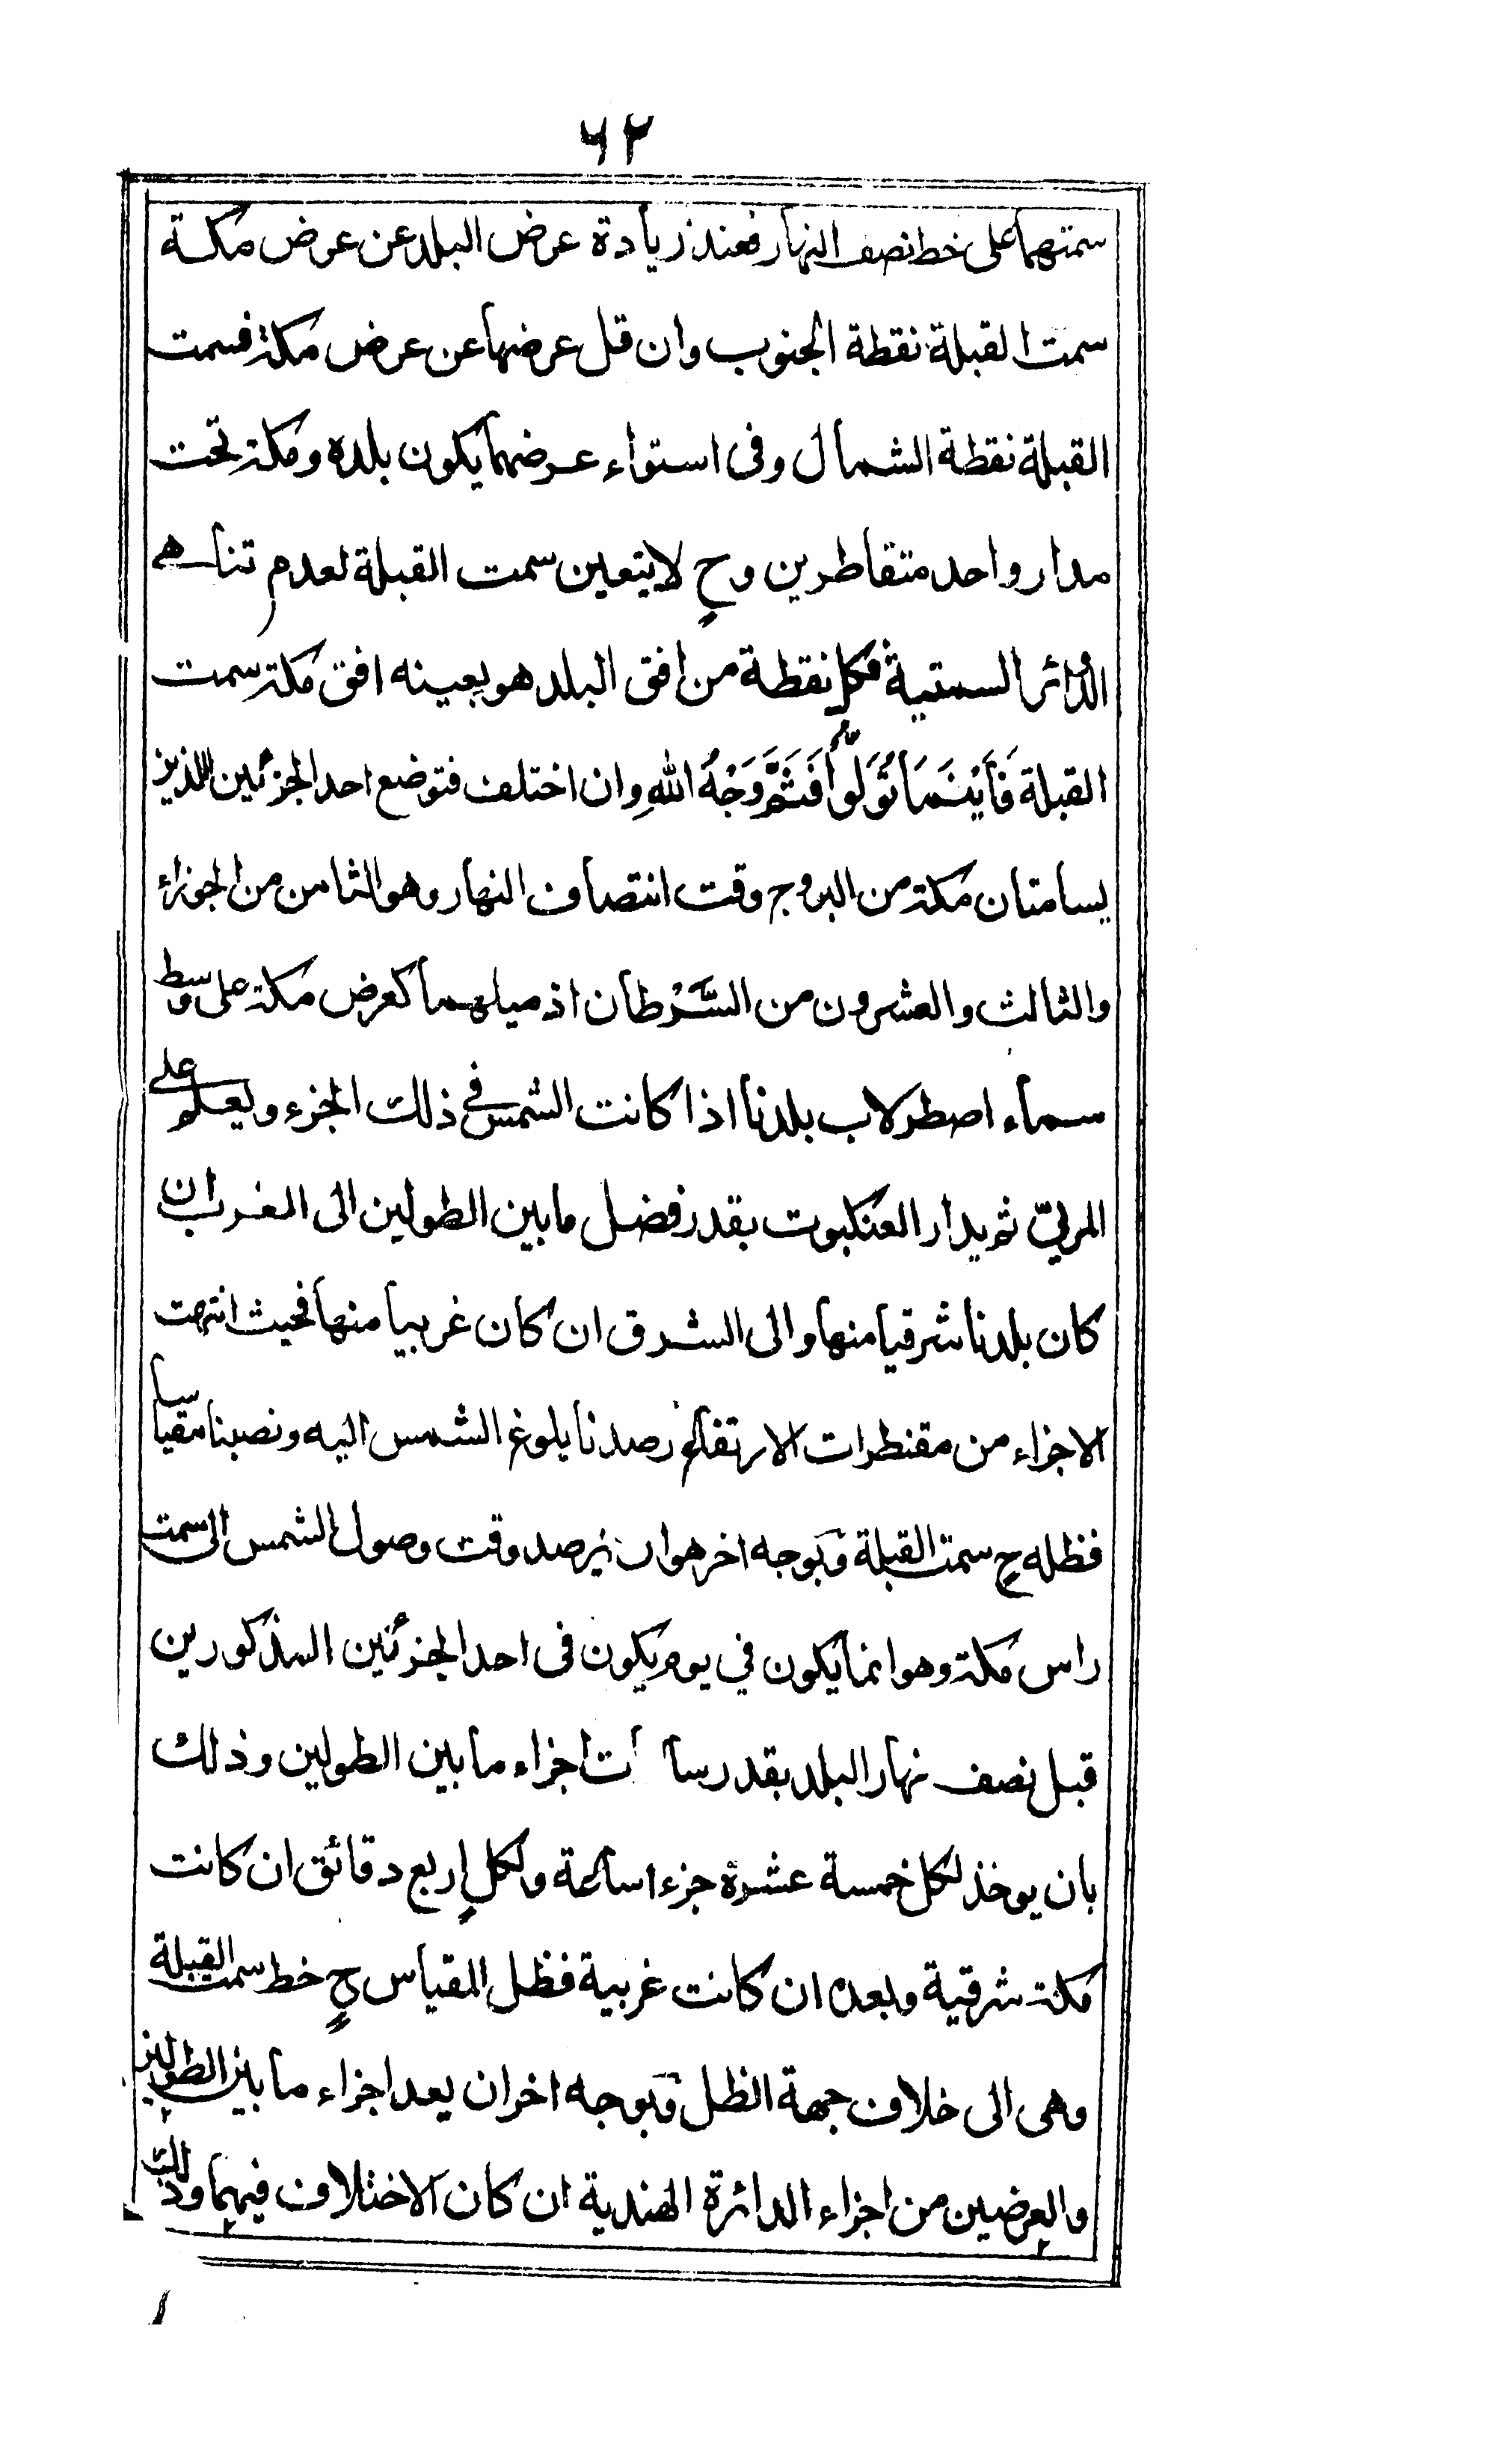 ٦٢
سمتهما على خط نصف النهار فعند زيادة عرض البلد عن عرض مكة
سمت القبلة نقطة الجنوب وان قل عرضها عن عرض مكة فسمت
القبلة نقطة الشمال وفى استواء عرضهما يكون بلده ومكة تحت
مدار واحد متقاطرين وح لا يتعين سمت القبلة لعدم تناهى
الدائر السمتية فكل نقطة من افق البلد هو بعينه افق مكة سمت
القبلة فَاَيْنَمَا تُوَلُّوا فَثَمَّ وَجْهُ اللهِ وان اختلف فتوضع احد الجزئين اللذين
يسامتان مكة من البروج وقت انتصاف النهار وهو الثامن من الجوزاء
والثالث والعشرون من السَّرْطان اذ ميلهما كعرض مكة على وسط
سماء اصطرلاب بلدنا اذا كانت الشمس في ذلك الجزء ويعلم على
المرئ ثم يدار العنكبوت بقدر فضل ما بين الطولين الى الغرب ان
كان بلدنا شرقيا منها والى الشرق ان كان غربيا منها فحيث انتهت
الاجزاء من مقنطرات الارتفاع رصدنا بلوغ الشمس اليه ونصبنا مقياسا
فظله ح سمت القبلة وبوجه اخر هو ان يرصد وقت وصول الشمس الى سمت
راس مكة وهو انما يكون في يوم يكون فى احد الجزئين المذكورين
قبل نصف نهار البلد بقدر سا ت اجزاء ما بين الطولين وذلك
بان يوخذ لكل خمسة عشرة جزءا ساعة ولكلٍ اربع دقائق ان كانت
مكة شرقية وبعده ان كانت غربية فظل المقياس ح خط سمت القبلة
وهى الى خلاف جهة الظل وبوجه اخر ان يعد اجزاء ما بين الطولين
والعرضين من اجزاء الدائرة الهندية ان كان الاختلاف فيهما وذلك